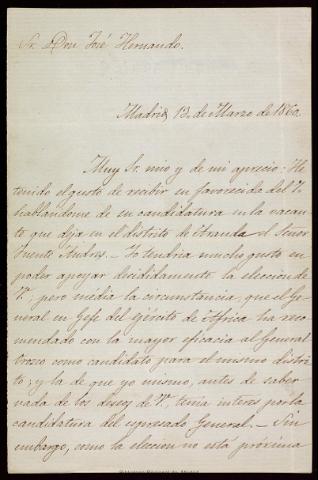 Sr. Don José Hernando.
Madrid 13 de Marzo de 1860.
Muy Sr. mio y de mi aprecio: He
tenido el gusto de recibir su favorecida del 7.
hablandome de su candidatura en la vacan-
te que deja en el distrito de Aranda el Señor
Fuente Andres. — Yo tendria mucho gusto en
poder apoyar decididamente la eleccion de
V.; pero média la circunstancia, que el Ge-
neral en Gefe del ejército de Africa ha reco-
mendado con la mayor eficacia al General
Orozco como candidato para el mismo distri-
to; y la de que yo mismo, antes de saber
nada de los deseos de V., tenia interes por la
candidatura del espresado General. — Sin
embargo, como la eleccion no está próxima